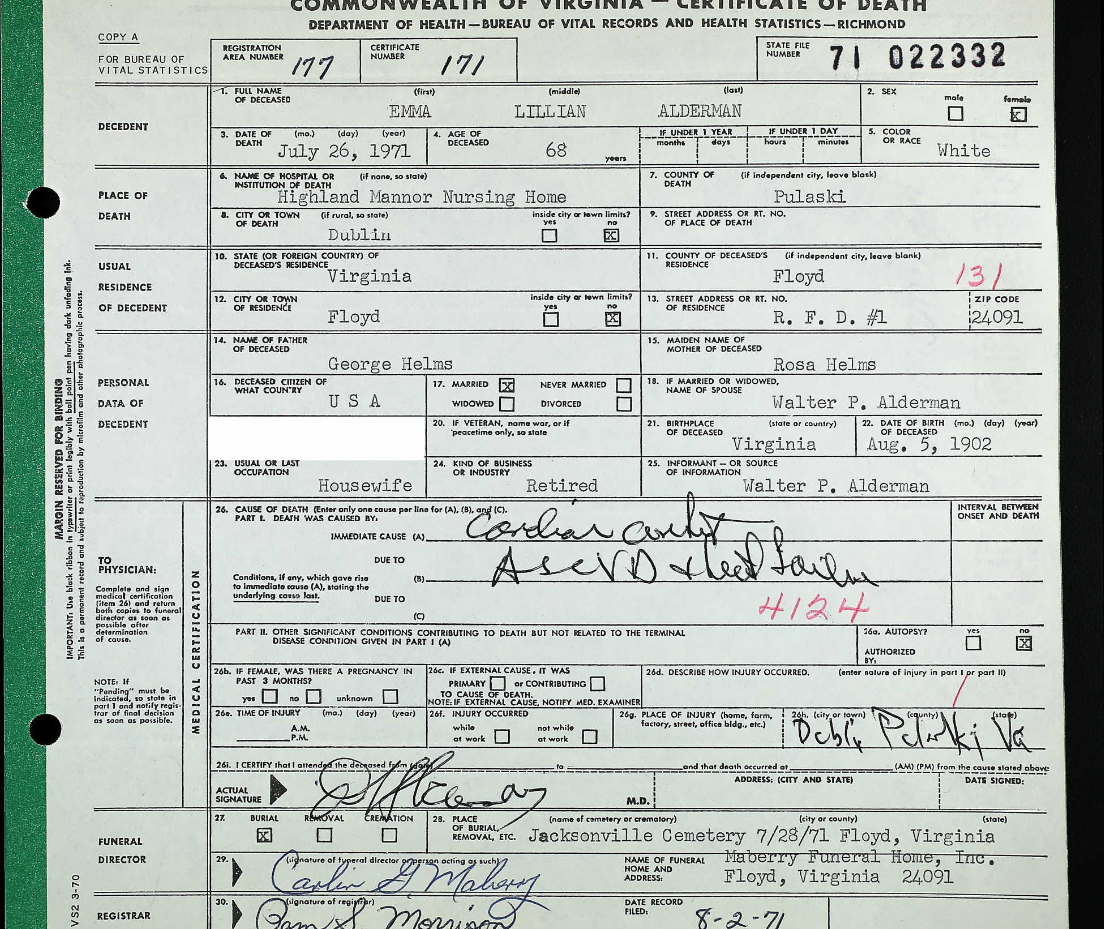 COMMONWEALTH OF VIRGINIA — CERTIFICATE OF DEATH
DEPARTMENT OF HEALTH—BUREAU OF VITAL RECORDS AND HEALTH STATISTICS—RICHMOND
COPY A
FOR BUREAU OF VITAL STATISTICS
REGISTRATION AREA NUMBER 177
CERTIFICATE NUMBER 171
STATE FILE NUMBER 71 022332
DECEDENT
1. FULL NAME OF DECEASED (first) (middle) (last)
EMMA LILLIAN ALDERMAN
2. SEX male female X
3. DATE OF DEATH (mo.) (day) (year)
July 26, 1971
4. AGE OF DECEASED 68 years
IF UNDER 1 YEAR months days
IF UNDER 1 DAY hours minutes
5. COLOR OR RACE White
PLACE OF DEATH
6. NAME OF HOSPITAL OR INSTITUTION OF DEATH (if none, so state)
Highland Mannor Nursing Home
7. COUNTY OF DEATH (if independent city, leave blank)
Pulaski
8. CITY OR TOWN OF DEATH (if rural, so state)
Dublin
inside city or town limits? yes no X
9. STREET ADDRESS OR RT. NO. OF PLACE OF DEATH
USUAL RESIDENCE OF DECEDENT
10. STATE (OR FOREIGN COUNTRY) OF DECEASED'S RESIDENCE
Virginia
11. COUNTY OF DECEASED'S RESIDENCE (if independent city, leave blank)
Floyd 131
12. CITY OR TOWN OF RESIDENCE
Floyd
inside city or town limits? yes no X
13. STREET ADDRESS OR RT. NO. OF RESIDENCE
R. F. D. #1
ZIP CODE 24091
PERSONAL DATA OF DECEDENT
14. NAME OF FATHER OF DECEASED
George Helms
15. MAIDEN NAME OF MOTHER OF DECEASED
Rosa Helms
16. DECEASED CITIZEN OF WHAT COUNTRY
U S A
17. MARRIED X NEVER MARRIED
WIDOWED DIVORCED
18. IF MARRIED OR WIDOWED, NAME OF SPOUSE
Walter P. Alderman
20. IF VETERAN, name war, or if peacetime only, so state
21. BIRTHPLACE (state or country)
Virginia
22. DATE OF BIRTH (mo.) (day) (year) OF DECEASED
Aug. 5, 1902
23. USUAL OR LAST OCCUPATION
Housewife
24. KIND OF BUSINESS OR INDUSTRY
Retired
25. INFORMANT — OR SOURCE OF INFORMATION
Walter P. Alderman
MARGIN RESERVED FOR BINDING
IMPORTANT: Use black ribbon in typewriter or print legibly with ball point pen having dark unfading ink.
This is a permanent record and subject to reproduction by microfilm and other photographic process.
TO PHYSICIAN:
Complete and sign medical certification (item 26) and return both copies to funeral director as soon as possible after determination of cause.
NOTE: If "Pending" must be indicated, so state in part I and notify registrar of final decision as soon as possible.
MEDICAL CERTIFICATION
26. CAUSE OF DEATH (Enter only one cause per line for (A), (B), and (C).
PART I. DEATH WAS CAUSED BY:
INTERVAL BETWEEN ONSET AND DEATH
IMMEDIATE CAUSE (A) Cardiac arrest
DUE TO
Conditions, if any, which gave rise to immediate cause (A), stating the underlying cause last.
(B) ASCVD & heart failure
DUE TO
(C)
4124
PART II. OTHER SIGNIFICANT CONDITIONS CONTRIBUTING TO DEATH BUT NOT RELATED TO THE TERMINAL DISEASE CONDITION GIVEN IN PART I (A)
26a. AUTOPSY? yes no X
AUTHORIZED BY:
26b. IF FEMALE, WAS THERE A PREGNANCY IN PAST 3 MONTHS?
yes no unknown
26c. IF EXTERNAL CAUSE, IT WAS
PRIMARY or CONTRIBUTING
TO CAUSE OF DEATH.
NOTE: IF EXTERNAL CAUSE, NOTIFY MED. EXAMINER
26d. DESCRIBE HOW INJURY OCCURRED. (enter nature of injury in part I or part II)
26e. TIME OF INJURY (mo.) (day) (year)
A.M.
P.M.
26f. INJURY OCCURRED
while at work not while at work
26g. PLACE OF INJURY (home, farm, factory, street, office bldg., etc.)
26h. (city or town) (county) (state)
Dublin Pulaski Va
26i. I CERTIFY that I attended the deceased from (date) to and that death occurred at (AM) (PM) from the cause stated above
ACTUAL SIGNATURE
M.D.
ADDRESS: (CITY AND STATE)
DATE SIGNED:
FUNERAL DIRECTOR
27. BURIAL X REMOVAL CREMATION
28. PLACE OF BURIAL, REMOVAL, ETC. (name of cemetery or crematory) (city or county) (state)
Jacksonville Cemetery 7/28/71 Floyd, Virginia
29. (signature of funeral director or person acting as such)
Carlin G. Maberry
NAME OF FUNERAL HOME AND ADDRESS:
Maberry Funeral Home, Inc.
Floyd, Virginia 24091
REGISTRAR
30. (signature of registrar)
Pam S. Morrison
DATE RECORD FILED: 8-2-71
VS2 3-70